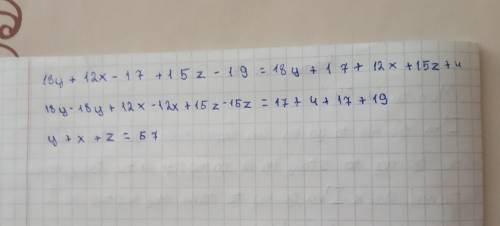 18y + 12x - 17 + 15z - 19 = 18y + 17 + 12x + 15z + 4
18y - 18y + 12x - 12x + 15z - 15z = 17 + 4 + 17 + 19
y + x + z = 57